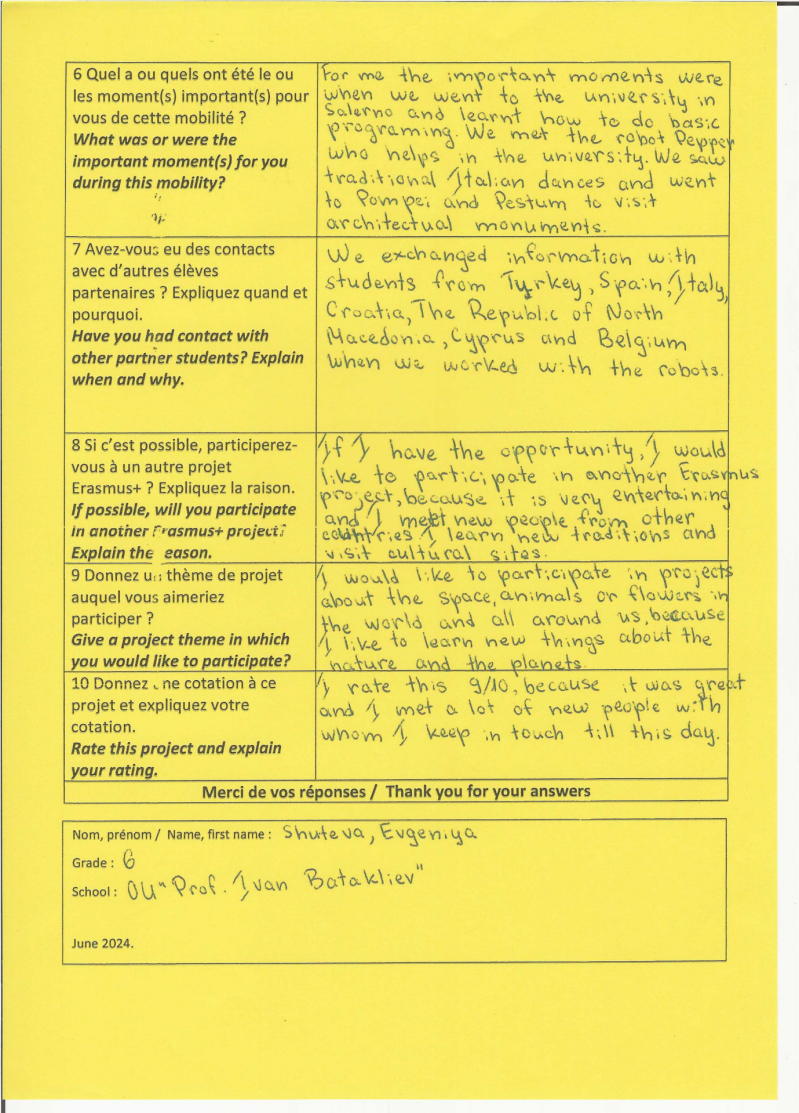 6 Quel a ou quels ont été le ou
les moment(s) important(s) pour
vous de cette mobilité ?
What was or were the
important moment(s) for you
during this mobility?
For me the important moments were
when we went to the university in
Salerno and learnt how to do basic
programing. We met the robot Pepper
who helps in the university. We saw
traditional Italian dances and went
to Pompei and Pestum to visit
architectual monuments.
7 Avez-vous eu des contacts
avec d'autres élèves
partenaires ? Expliquez quand et
pourquoi.
Have you had contact with
other partner students? Explain
when and why.
We exchanged information with
students from Tyrkey, Spain, Italy,
Croatia, The Republic of North
Macedonia, Cyprus and Belgium
when we worked with the robots.
8 Si c'est possible, participerez-
vous à un autre projet
Erasmus+ ? Expliquez la raison.
If possible, will you participate
in another Erasmus+ project?
Explain the eason.
If I have the opportunity, I would
like to participate in another Erasmus
project, because it is very entertaining
and I meet new people from other
countries I learn new traditions and
visit cultural sites.
9 Donnez un thème de projet
auquel vous aimeriez
participer ?
Give a project theme in which
you would like to participate?
I would like to participate in projects
about the space, animals or flowers in
the world and all around us, because
I like to learn new things about the
nature and the planets.
10 Donnez une cotation à ce
projet et expliquez votre
cotation.
Rate this project and explain
your rating.
I rate this 9/10, because it was great
and I met a lot of new people with
whom I keep in touch till this day.
Merci de vos réponses / Thank you for your answers
Nom, prénom / Name, first name : Shuteva, Evgeniya
Grade : 6
School : OU "Prof. Ivan Batakliev"
June 2024.